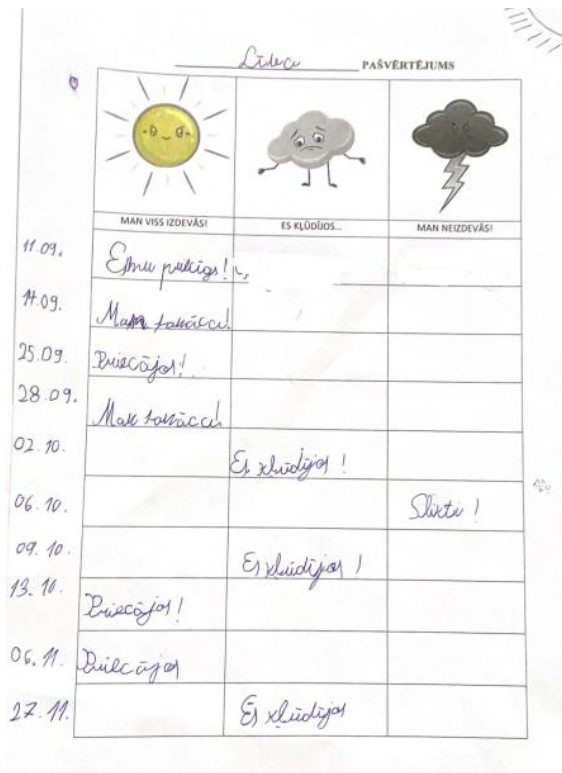 PAŠVĒRTĒJUMS
MAN VISS IZDEVĀS! ES KĻŪDĪJOS... MAN NEIZDEVĀS!
11.09. Esmu priecīgs!
14.09. Man sanāca!
25.09. Priecājos!
28.09. Man sanāca!
02.10. Es kļūdījos!
06.10. Slikti!
09.10. Es kļūdījos!
13.10. Priecājos!
06.11. Priecājos
27.11. Es kļūdījos